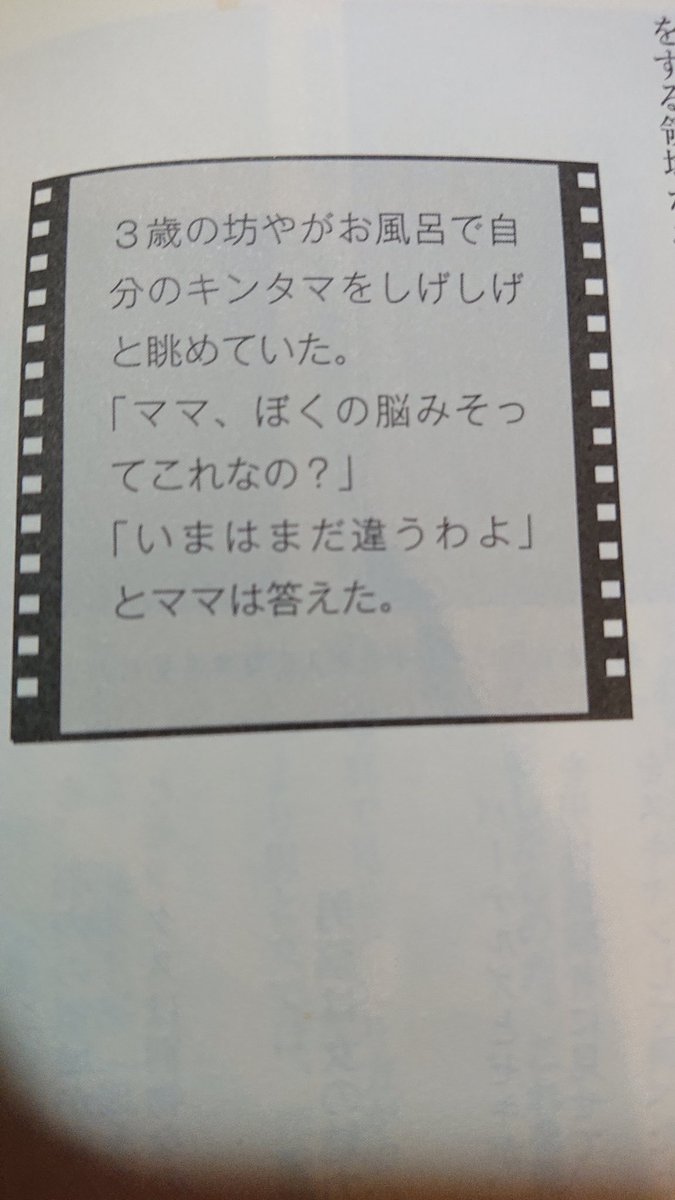 ３歳の坊やがお風呂で自
分のキンタマをしげしげ
と眺めていた。
「ママ、ぼくの脳みそっ
てこれなの？」
「いまはまだ違うわよ」
とママは答えた。